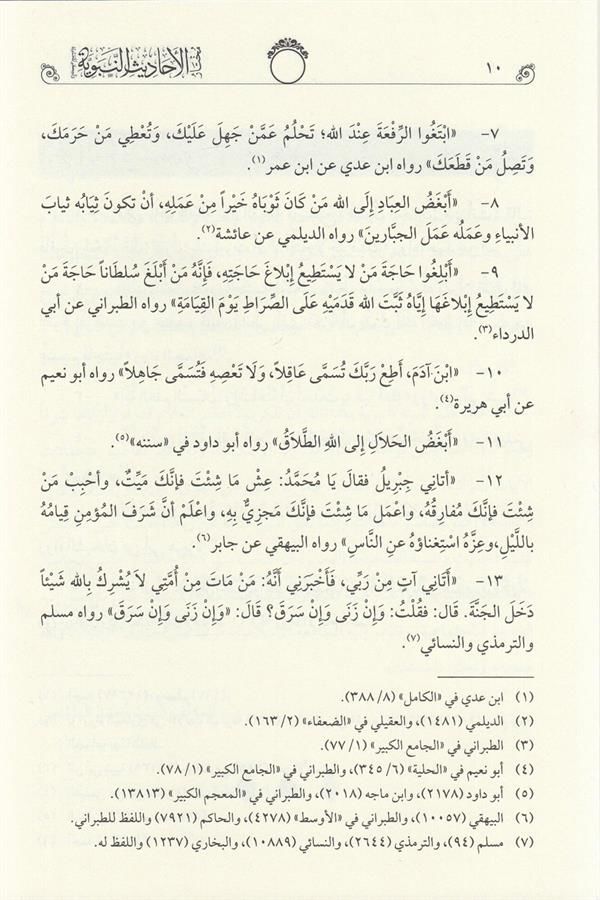 ١٠
الأحاديث النبوية
٧- «ابْتَغُوا الرِّفْعَةَ عِنْدَ الله؛ تَحْلُمُ عَمَّنْ جَهِلَ عَلَيْكَ، وَتُعْطِي مَنْ حَرَمَكَ،
وَتَصِلُ مَنْ قَطَعَكَ» رواه ابن عدي عن ابن عمر(١).
٨- «أَبْغَضُ العِبَادِ إِلَى الله مَنْ كَانَ ثَوْبَاهُ خَيْراً مِنْ عَمَلِهِ، أنْ تكونَ ثِيَابُه ثيابَ
الأنبياءِ وعَمَلُه عَمَلَ الجبَّارينَ» رواه الديلمي عن عائشة(٢)
٩- «أَبْلِغُوا حَاجَةَ مَنْ لا يَسْتَطِيعُ إِبْلاغَ حَاجَتِهِ، فَإِنَّهُ مَنْ أَبْلَغَ سُلطَاناً حَاجَةَ مَنْ
لا يَسْتَطِيعُ إِبْلاغَهَا إِيَّاهُ ثَبَّتَ الله قَدَمَيْهِ عَلَى الصِّرَاطِ يَوْمَ القِيَامَةِ» رواه الطبراني عن أبي
الدرداء(٣).
١٠- «ابْنَ آدَمَ، أَطِعْ رَبَّكَ تُسَمَّى عَاقِلاً، وَلَا تَعْصِهِ فَتُسَمَّى جَاهِلاً» رواه أبو نعيم
عن أبي هريرة(٤).
١١- «أَبْغَضُ الحَلَالِ إِلى اللهِ الطَّلَاقُ» رواه أبو داود في «سننه»(٥).
١٢- «أتانِي جِبْرِيلُ فقالَ يَا مُحَمَّدُ: عِش مَا شِئْتَ فإنَّكَ مَيِّتٌ، وأحْبِبْ مَنْ
شِئْتَ فإنَّكَ مُفارِقُه، واعْمَل مَا شِئْتَ فإنَّكَ مَجزِيٌّ بِهِ، واعْلَمْ أنَّ شَرَفَ المُؤمِنِ قِيامُهُ
باللَّيْلِ، وعِزَّهُ اسْتِغناؤهُ عنِ النَّاسِ» رواه البيهقي عن جابر(٦)
١٣- «أَتَانِي آتٍ مِنْ رَبِّي، فَأَخْبَرَنِي أَنَّهُ: مَنْ مَاتَ مِنْ أُمَّتِي لاَ يُشْرِكُ بِالله شَيْئاً
دَخَلَ الجَنَّةَ. قال: فقُلْتُ: وَإِنْ زَنَى وَإِنْ سَرَقَ؟ قَالَ: «وَإِنْ زَنَى وَإِنْ سَرَقَ» رواه مسلم
والترمذي والنسائي(٧).
(١) ابن عدي في «الكامل» (٨/ ٣٨٨).
(٢) الديلمي (١٤٨١)، والعقيلي في «الضعفاء» (٢/ ١٦٣).
(٣) الطبراني في «الجامع الكبير» (١/ ٧٧).
(٤) أبو نعيم في «الحلية» (٦/ ٣٤٥)، والطبراني في «الجامع الكبير» (١/ ٧٨).
(٥) أبو داود (٢١٧٨)، وابن ماجه (٢٠١٨)، والطبراني في «المعجم الكبير» (١٣٨١٣).
(٦) البيهقي (١٠٠٥٧)، والطبراني في «الأوسط» (٤٢٧٨)، والحاكم (٧٩٢١) واللفظ للطبراني.
(٧) مسلم (٩٤)، والترمذي (٢٦٤٤)، والنسائي (١٠٨٨٩)، والبخاري (١٢٣٧) واللفظ له.